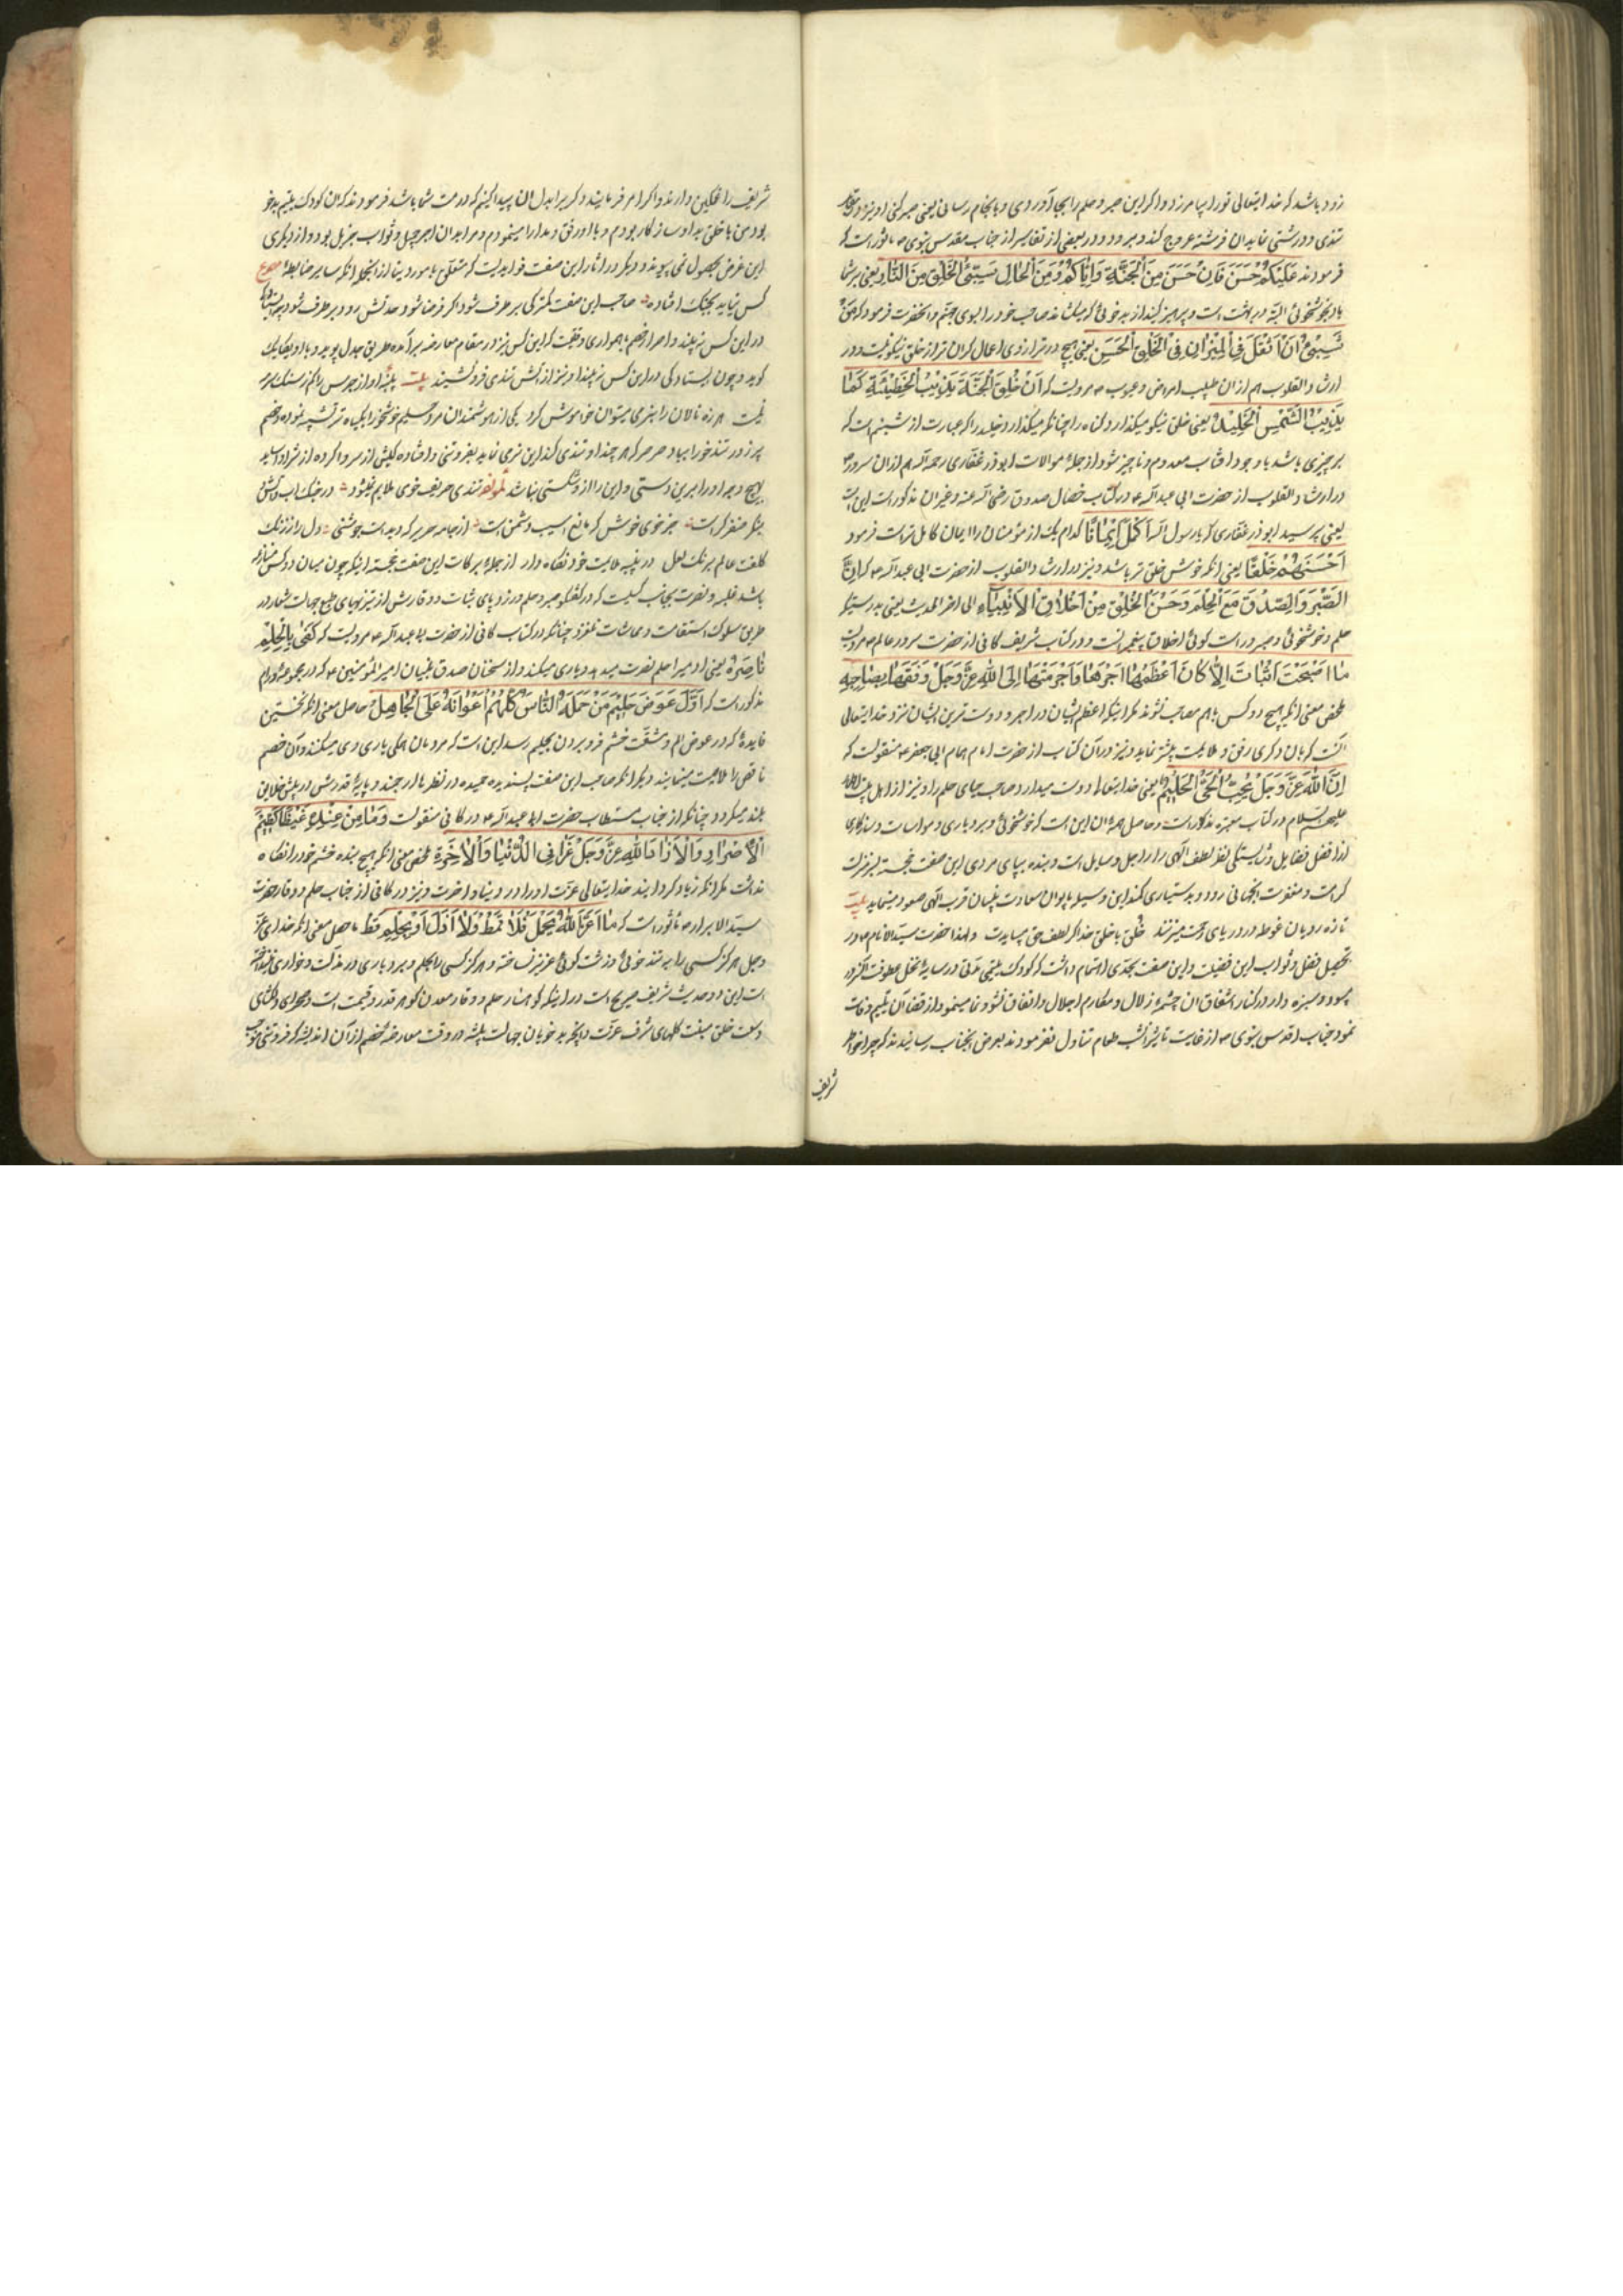 زود باشد که خدایتعالی تو را بیامرزد و اگر این صبر و حلم را بجا آوردی و بانجام رسانی یعنی صبر کنی او نیز
تندی و درشتی نماید ان فرشته عروج کند و برود و در بعضی از تفاسیر از جناب مقدس نبوی ص ماثور است که
فرمودند عَلَیْکُمْ حُسْنَ فَاِنَّ حُسْنَ مِنَ الْجَنَّةِ وَاِیَّاکُمْ وَمِنَ الْخال سَیِّئُ الْخُلْقِ مِنَ النّارِ یعنی بر شما
باد بخوشخوئی البته در بهشت است و پرهیز کنید از بدخوئی که میکشاند صاحب خود را بسوی جهنم و انحضرت فرمود که مِنْ
شَیئٍ اَثْقَلَ فِی الْمِیْزانِ فِی الْخَلْقِ الْحَسَنِ یعنی هیچ در ترازوی اعمال کران تر از خلق نیکو نیست و در
ارشاد القلوب هم از ان طبیب امراض و عیوب ص مرویست که اَنَّ خُلْقَ الْجَنَّةَ یُذِیبُ الْخَطِیْئَةِ کَمٰا
یُذِیبُ الشَّمْسِ الْجَلِیْدُ یعنی خلق نیکو میکدازد کناه را چنانکه میکدازد جلید را که عبارت از شبنم است که
بر چیزی باشد با وجود افتاب معدوم و ناچیز شود از جملهٔ سوالات ابوذر غفاری رحمه الله هم از ان سرور ص
در ارشاد القلوب از حضرت ابی عبد الله ع و در کتاب خصال صدوق رضی الله عنه و غیر ان مذکور است این است
یعنی پرسید ابوذر غفاری که یا رسول الله اَکْمَلُ اِیْمٰانًا کدام یک از مؤمنان را ایمان کامل تر است فرمود
اَحْسَنَهُمْ خُلْقًا یعنی انکه خوش خلق تر باشد و نیز در ارشاد القلوب از حضرت ابی عبد الله ع که اِنَّ
الصَّبْرَ وَالصِّدْقَ مَعَ الْحِلْمَ وَحُسْنَ الْخُلْقِ مِنْ اَخْلاقِ الْاَنْبِیآءِ الی اخر الحدیث یعنی بدرستیکه
حلم و خوشخوئی و صبر و راست کوئی اخلاق پیغمبرانست و در کتاب شریف کافی از حضرت سرور عالم ص مرویست
مٰا اصْبَحْتَ اِلّا کٰانَ اَعْظَمُهٰا اَجْرَهٰا وَاَحْرَمَتْهٰا اِلَی اللهِ عَزَّ وَجَلَّ وَفَقَهٰا بِصٰاحِبِهِ
ملخص معنی انکه هیچ دو کس با هم مصاحب نشوند مکر اینکه اعظم ایشان در اجر و دوست ترین ایشان نزد خدایتعالی
انست که بان دکری رفق و ملایمت بیشتر نماید و نیز در ان کتاب از حضرت امام همام ابی جعفر ع منقولست که
اِنَّ اللهَ عَزَّ وَجَلَّ یُحِبُّ الْحَیَّ الْحَلِیْمُ یعنی خدایتعالی دوست میدارد صاحب حیای حلم را و نیز از اهل بیت
علیهم السلام در کتاب معتبره مذکور است و حاصل همهٔ ان این است که خوشخوئی و بردباری و مواسات و سازکاری
از افضل فضایل و شایستکی لطف الهی را اجل وسایل است و بنده بپای مردی این صفت خجسته بر منزلت
کرامت و صفوت انجهانی رود و بدستیاری کمند این وسیله بایوان سعادت بنیان قرب الهی صعود مینماید بیت
تازه رویان غوطه در دریای رحمت میزنند خُلق با خلق خدا کر لطف حق میبایدت ولهذا حضرت سید الانام ص در
تحصیل فضل و ثواب این فضیلت و این صفت بحدی اهتمام داشت که کودک یتیمی مدتی در سایهٔ نخل عطوفت
و سبزه وار در کنار اشفاق ان چشمهٔ زلال و مکارم اجلال و اتفاق نشو و نما مینمود و از قضا آن یتیم وفات
نمود جناب اقدس نبوی ص از غایت تاثر انشب طعام تناول نفرمودند بعرض انجناب رسانیدند که چرا خاطر
شریف
شریف را غمکین دارند و اکر امر فرمایند دکر برا بدل ان پیدا کنیم که در خدمت شما باشد فرمودند که ان کودک یتیم بدخو
بود من با خلق بد او سازکار بودم و با او رفق و مدارا مینمودم و مرا بدان اجر جمیل و ثواب جزیل بود و از دیکری
این غرض بحصول نمی پیوندد و دیکر در اثار این صفت فوایدیست که متعلق بامور دنیا از انجمله انکه سایر ضابطهٔ مصرع
کس نیاید بجنک افتاده صاحب این صفت کمتر کسی بر طرف شود اکر فرضا شود حدتش رود و بر طرف شود
در این کس نه بیند و اصرار خصم با همواری وقتیست که این کس نیز در مقام معارضه برآمده طریق جدل پوید و با او یکایک
کوید و چون ایستادکی در این کس نه بیند او نیز از آتش تندی فرو نشیند بیت پنبه را و از جرس را کم ز سنک سرمه
نیست هرزه نالان را بنرمی میتوان خاموش کرد یکی از هوشمندان مرد حلیم خوشخو را بکیاه تر تشبیه نموده و خصم
پر زور تندخو را بباد صرصر که هر چند او تندی کند این نرمی نماید بفروتنی و افتاده کیش از سر وا کرده از شر او اسید
بهیچ وجه او را بر این دستی و این را از او شکستی نباشد لمولفه تندی حریف خوی ملایم نمیشود در جنک اب و آتش
بنکر مظفر کراست جز خوی خوش که مانع اسیب دشمن است از جامه حریر که دیده است جوشنی دل را ز زنک
کلفت عالم برنک لعل در پنبه ملایمت خود نکاه دار از جمله برکات این صفت خجسته اینکه چون میان دو کس منازعه
باشد غلبه و نصرت بجانب کسیست که در کفتکو صبر و حلم ورزد و پای ثبات و وقارش از تیزیهای طبع جهالت شعار در
طریق سلوک استقامت و مماشات نلغزد چنانکه در کتاب کافی از حضرت ابا عبد الله ع مرویست که کَفٰی بِالْحِلْمِ
نٰاصِرًا یعنی ادمیرا حلم نصرت میدهد و یاری میکند و از سخنان صدق بنیان امیر المؤمنین ع که در مجموعهٔ ورام
مذکور است که اَوَّلُ عِوَضِ حَلِیْمٍ مَنْ حَمَلَهُ النّاسَ کُلَّهُمْ اَعْوٰانَهُ عَلَی الْجٰاهِلُ حاصل معنی انکه نخستین
فایدهٔ که در عوض الم و مشقت خشم فرو بردن بحلیم رسد این است که مردمان همکی یاری وی میکنند و آن خصم
ناقص را ملامت مینمایند دیکر انکه صاحب این صفت پسندیده حمیده در نظرها ارجمند و پایهٔ قدرش در پیش خلایق
بلند میکردد چنانکه از جناب مستطاب حضرت ابا عبد الله ع در کافی منقولست وَمٰا مِنْ عَبْدِهِ غَیْظًا کَظَمَ
اِلّا زادَ اللهُ عَزَّ وَجَلَّ عِزًّا فِی الدُّنْیٰا وَالْاٰخِرَةِ ملخص معنی انکه هیچ بنده خشم خود را نکاه
نداشت مکر انکه زیاد کردانید خدایتعالی عزت او را در دنیا و اخرت و نیز در کافی از جناب حلم و وقار حضرت
سید الابرار ص مأثور است که مٰا اَعَزَّ اللهُ بِجَهْلٍ قَطُّ وَلا اَذَلَّ بِحِلْمٍ قَطُّ حاصل معنی انکه خدای عز
وجل هرکز کسی را به تندخوئی و زشت کوئی عزیز نساخته و هرکز کسی را بحلم و بردباری در مذلت و خواری نینداخته
است این دو حدیث شریف صریح است در اینکه کوهسار حلم و وقار معدن کوهر قدر و قیمت است و صحرای دلکشای
وسعت خلق منبت کلهای شرف و عزت و انچه بدخویان جهالت پیشه در وقت معارضهٔ خصم از آن اندیشه که فروتنی